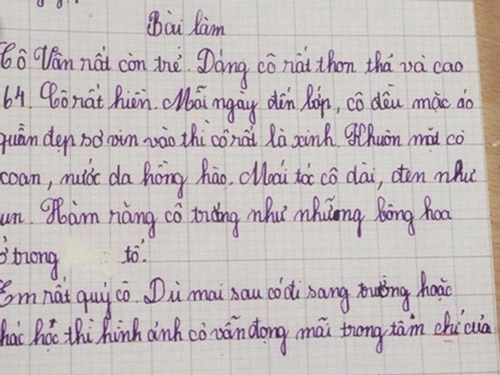 Bài làm
Cô Vân rất còn trẻ. Dáng cô rất thon thả và cao
64. Cô rất hiền. Mỗi ngày đến lớp, cô đều mặc áo
quần đẹp sơ vin vào thì cô rất là xinh. Khuôn mặt cô
xoan, nước da hồng hào. Mái tóc cô dài, đen như
un. Hàm răng cô trắng như những bông hoa
ở trong tổ.
Em rất quý cô. Dù mai sau cô đi sang trường hoặc
hác học thì hình ảnh cô vẫn đọng mãi trong tâm chí của